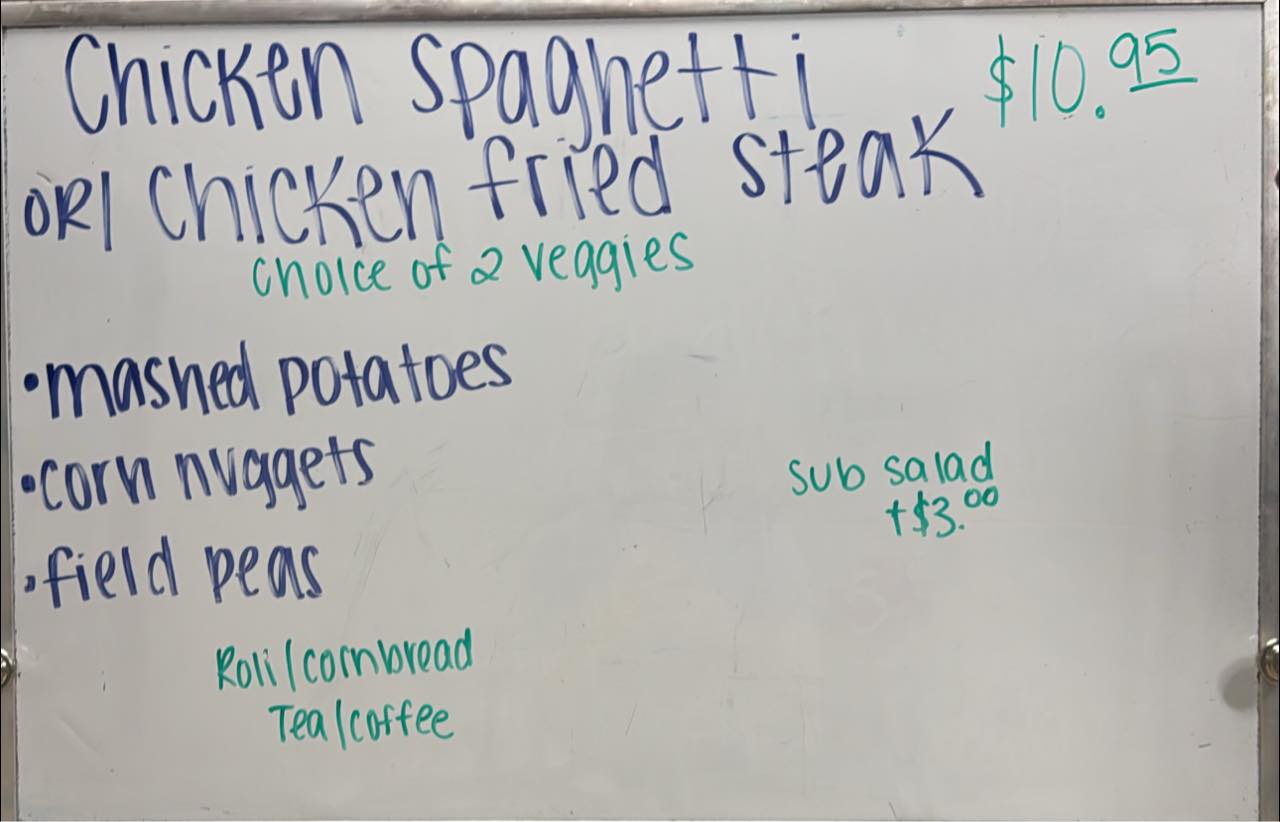 Chicken Spaghetti $10.95
OR/ Chicken fried steak
choice of 2 veggies
•mashed potatoes
•corn nuggets
•field peas
sub salad
+$3.00
Roll/cornbread
Tea/coffee